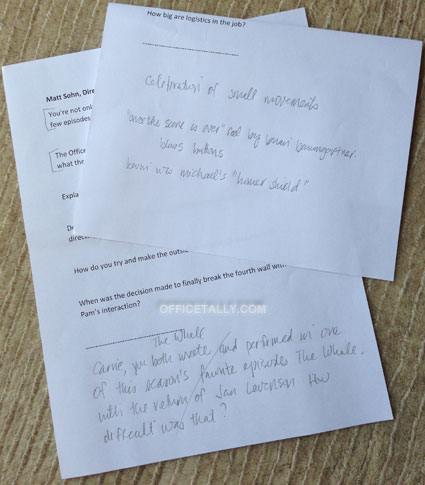 How big are logistics in the job?
celebration of small movements
the scene is over" baumgartner.
blows buttons
was michael's "humor shield"
Matt Sohn, Dire
You're not onl
few episodes
The Office
what thr
Expla
De
direc
How do you try and make the outsi
When was the decision made to finally break the fourth wall with
Pam's interaction?
OFFICETALLY.COM
The Whale
Carrie, you both wrote and performed in one
of this season's favorite episodes The Whale.
with the return of Jan Levenson How
difficult was that?